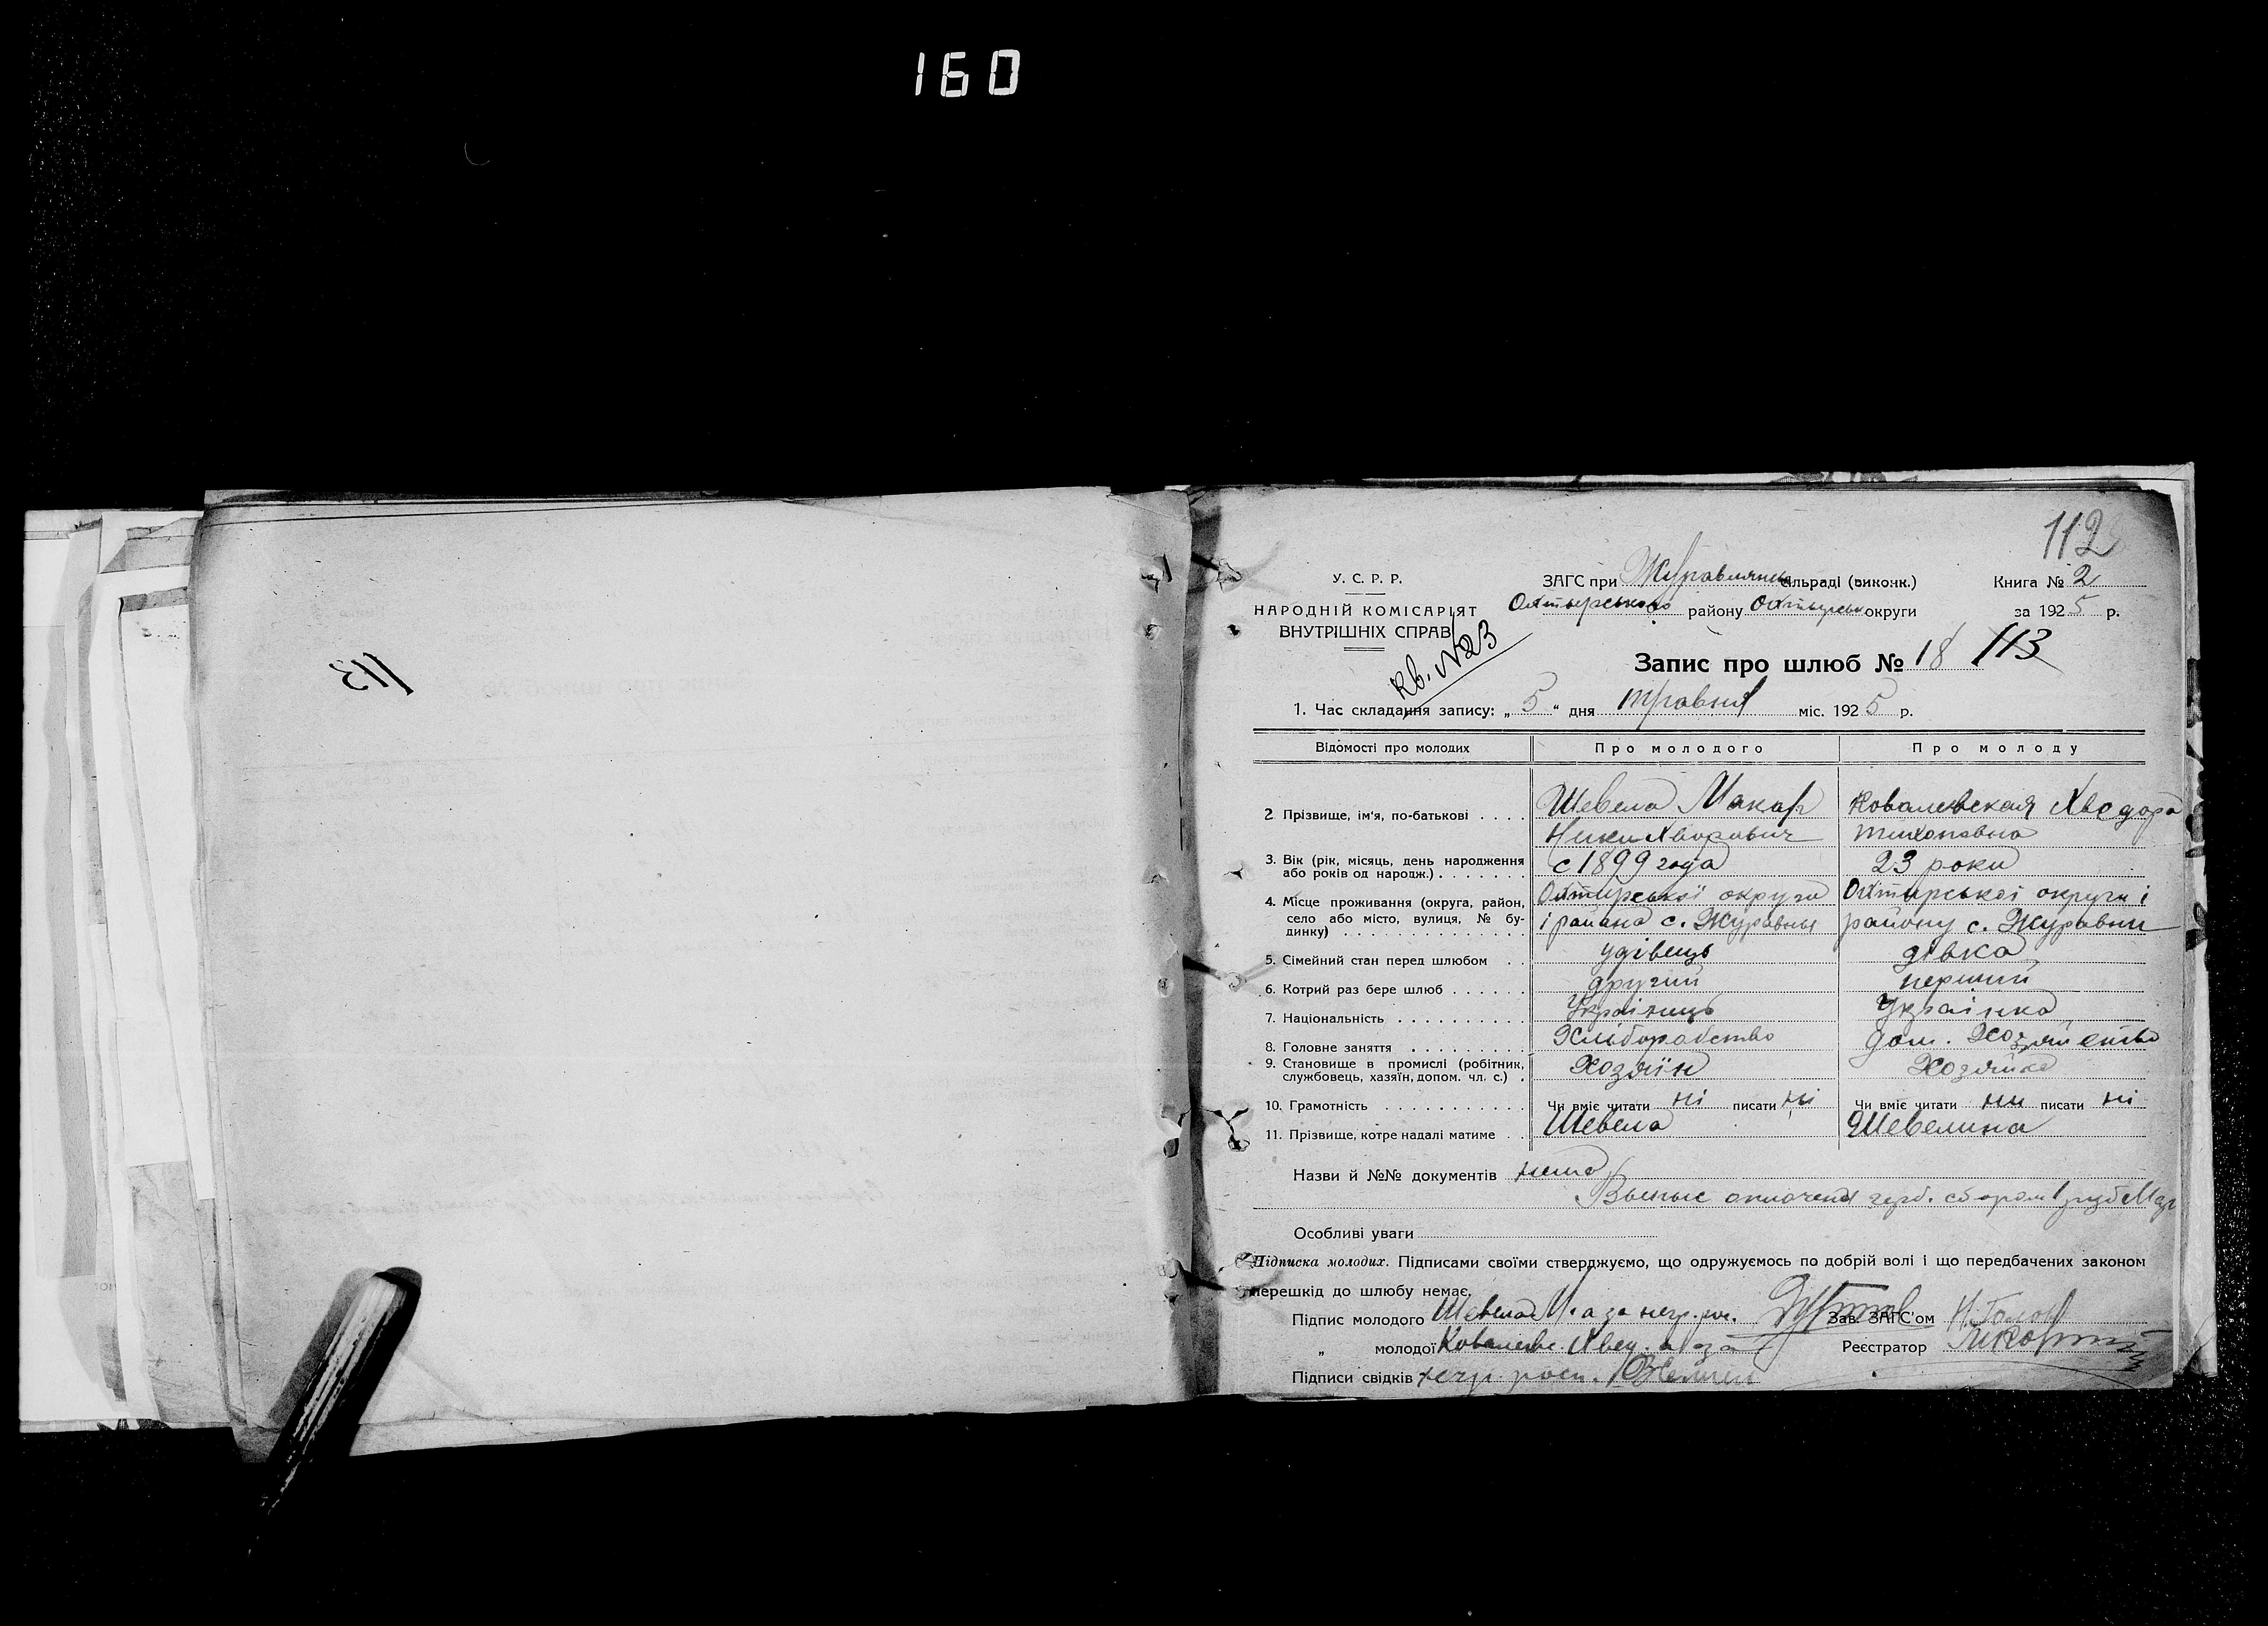 160
113
112
У. С. Р. Р.
НАРОДНІЙ КОМІСАРІЯТ
ВНУТРІШНІХ СПРАВ
Кв. №23
ЗАГС при Журавлянск сільраді (виконк.)
Охтырського району Охтырськ округи
Книга № 2
за 1925 р.
Запис про шлюб № 18 113
1. Час складання запису: „5“ дня травня міс. 1925 р.
Відомості про молодих Про молодого Про молоду
2. Прізвище, ім'я, по-батькові . . . . Шевела Макар Ковалевская Хведора
Никихворович тихоновна
3. Вік (рік, місяць, день народження або років од народж.) . . . . . . . с 1899 года 23 роки
4. Місце проживання (округа, район, Охтирської округи Охтирської округи і
село або місто, вулиця, № будинку) . . . . і района с. Журавны району с. Журавни
5. Сімейний стан перед шлюбом . . удівець дівка
6. Котрий раз бере шлюб . . . . . . другий перший
7. Національність . . . . . . . . . . Українць Українка
8. Головне заняття . . . . . . . . . Хліборобство дом. Хозяйство
9. Становище в промислі (робітник, службовець, хазяїн, допом. чл. с.) . Хозяїн Хозяйка
10. Грамотність . . . . . . . . . . . Чи вміє читати ні писати ні Чи вміє читати ни писати ні
11. Прізвище, котре надалі матиме . . Шевела Шевелина
Назви й №№ документів нема
Выпыс оплочена герб. сбором 1 руб
Особливі уваги
Підписка молодих. Підписами своїми стверджуємо, що одружуємось по добрій волі і що передбачених законом
перешкід до шлюбу немає.
Підпис молодого Шевела М. а за негр. рос. Зав. ЗАГС'ом
„ молодої Ковалевс. Хвед. а за Реєстратор
Підписи свідків негр. росп.